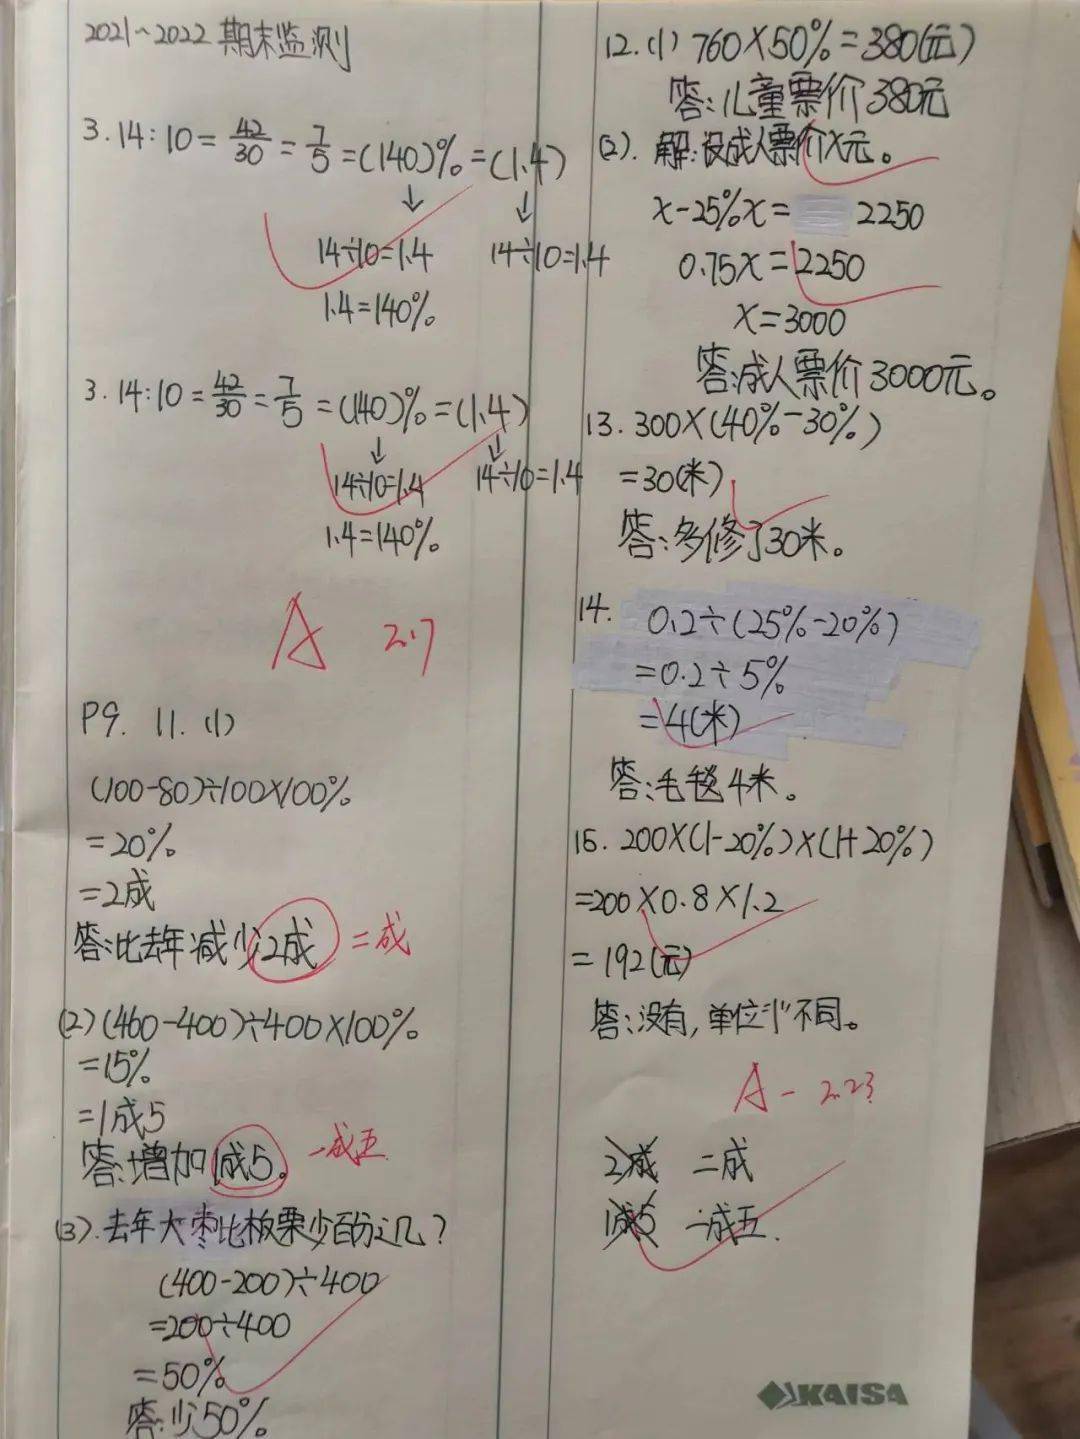 2021~2022 期末监测
3. 14:10 = 42/30 = 7/5 = (140)% = (1.4)
↓ ↓
14÷10=1.4 14÷10=1.4
1.4=140%
3. 14:10 = 42/30 = 7/5 = (140)% = (1.4)
↓ ↓
14÷10=1.4 14÷10=1.4
1.4=140%
A 2.7
P9. 11. (1)
(100-80)÷100×100%
=20%
=2成
答:比去年减少2成 二成
(2)(460-400)÷400×100%
=15%
=1成5
答:增加1成5。 一成五
(3).去年大枣比板栗少百分之几?
(400-200)÷400
=200÷400
=50%
答:少50%
12.(1) 760×50%=380(元)
答:儿童票价380元
(2). 解:设成人票价x元。
x-25%x= 2250
0.75x=2250
x=3000
答:成人票价3000元。
13. 300×(40%-30%)
=30(米)
答:多修了30米。
14. 0.2÷(25%-20%)
=0.2÷5%
=4(米)
答:毛毯4米。
15. 200×(1-20%)×(1+20%)
=200×0.8×1.2
=192(元)
答:没有,单位"1"不同。
A- 2.23
2成 二成
1成5 一成五.
KAISA